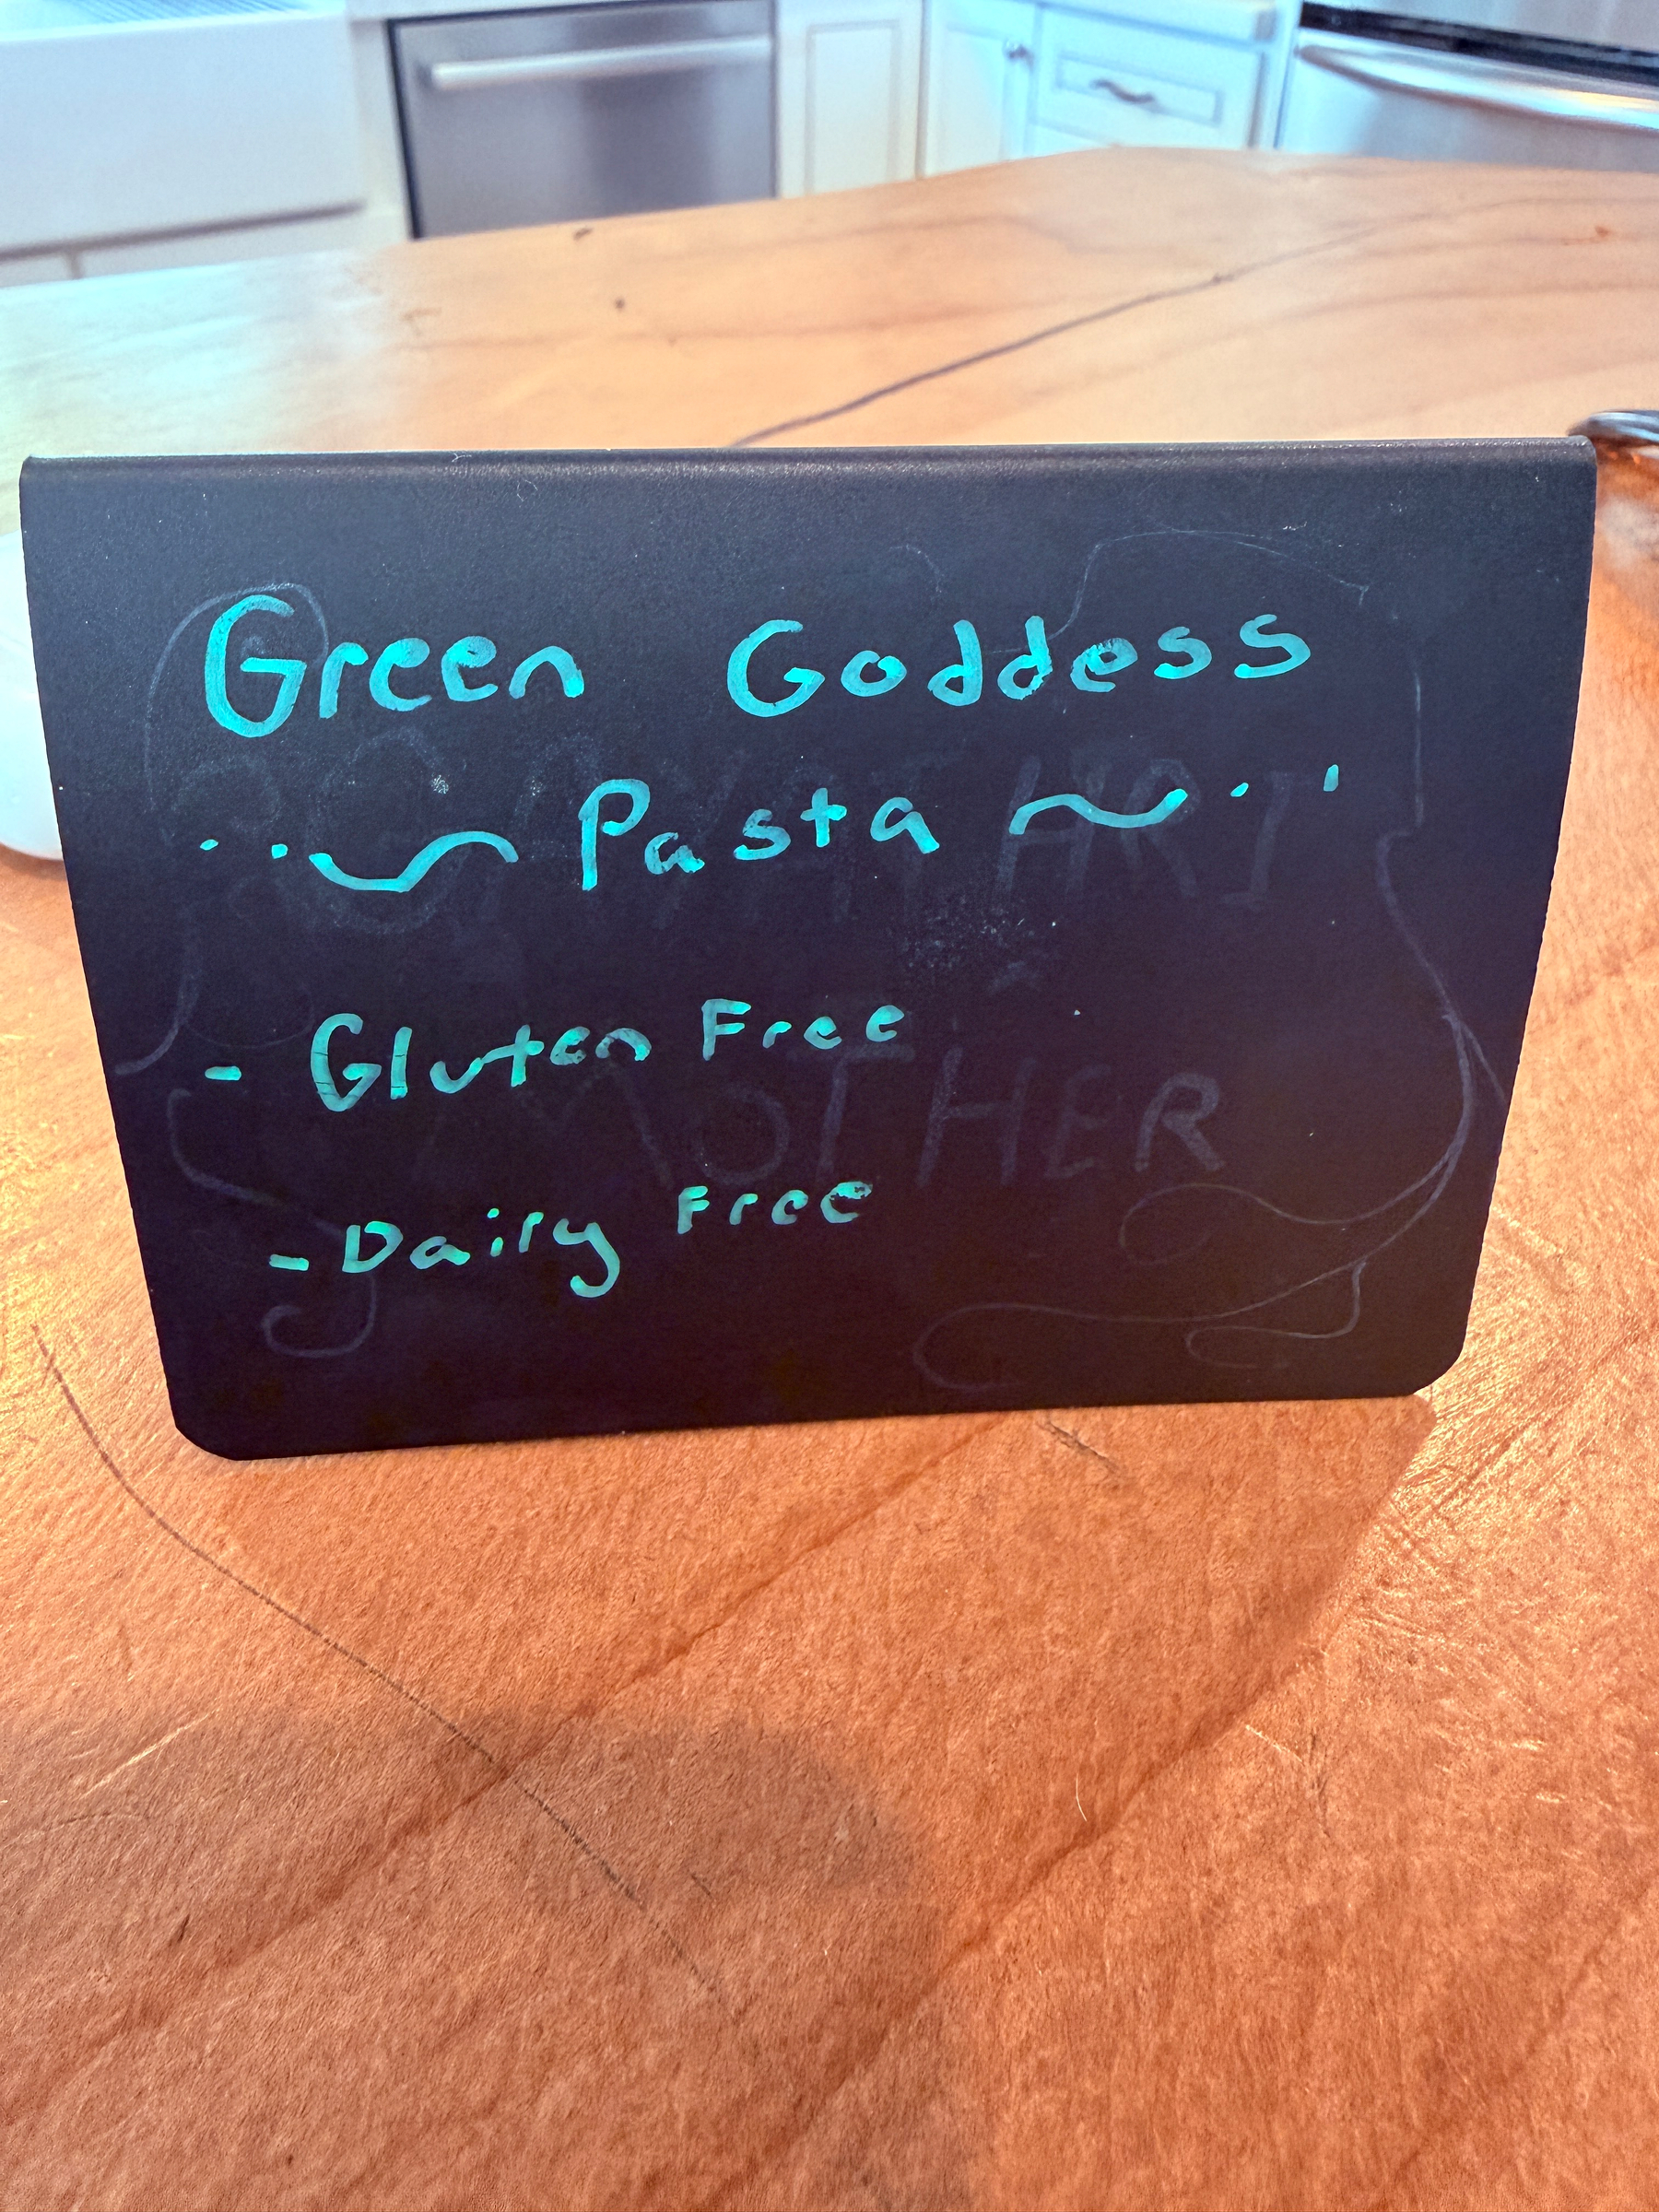 Green Goddess
Pasta
- Gluten Free
MOTHER
- Dairy Free